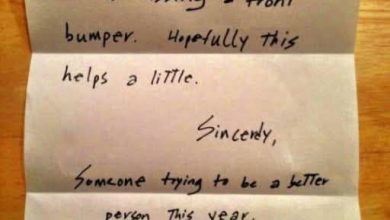 a front
bumper. Hopefully this
helps a little.
Sincerely,
Someone trying to be a better
person this year.